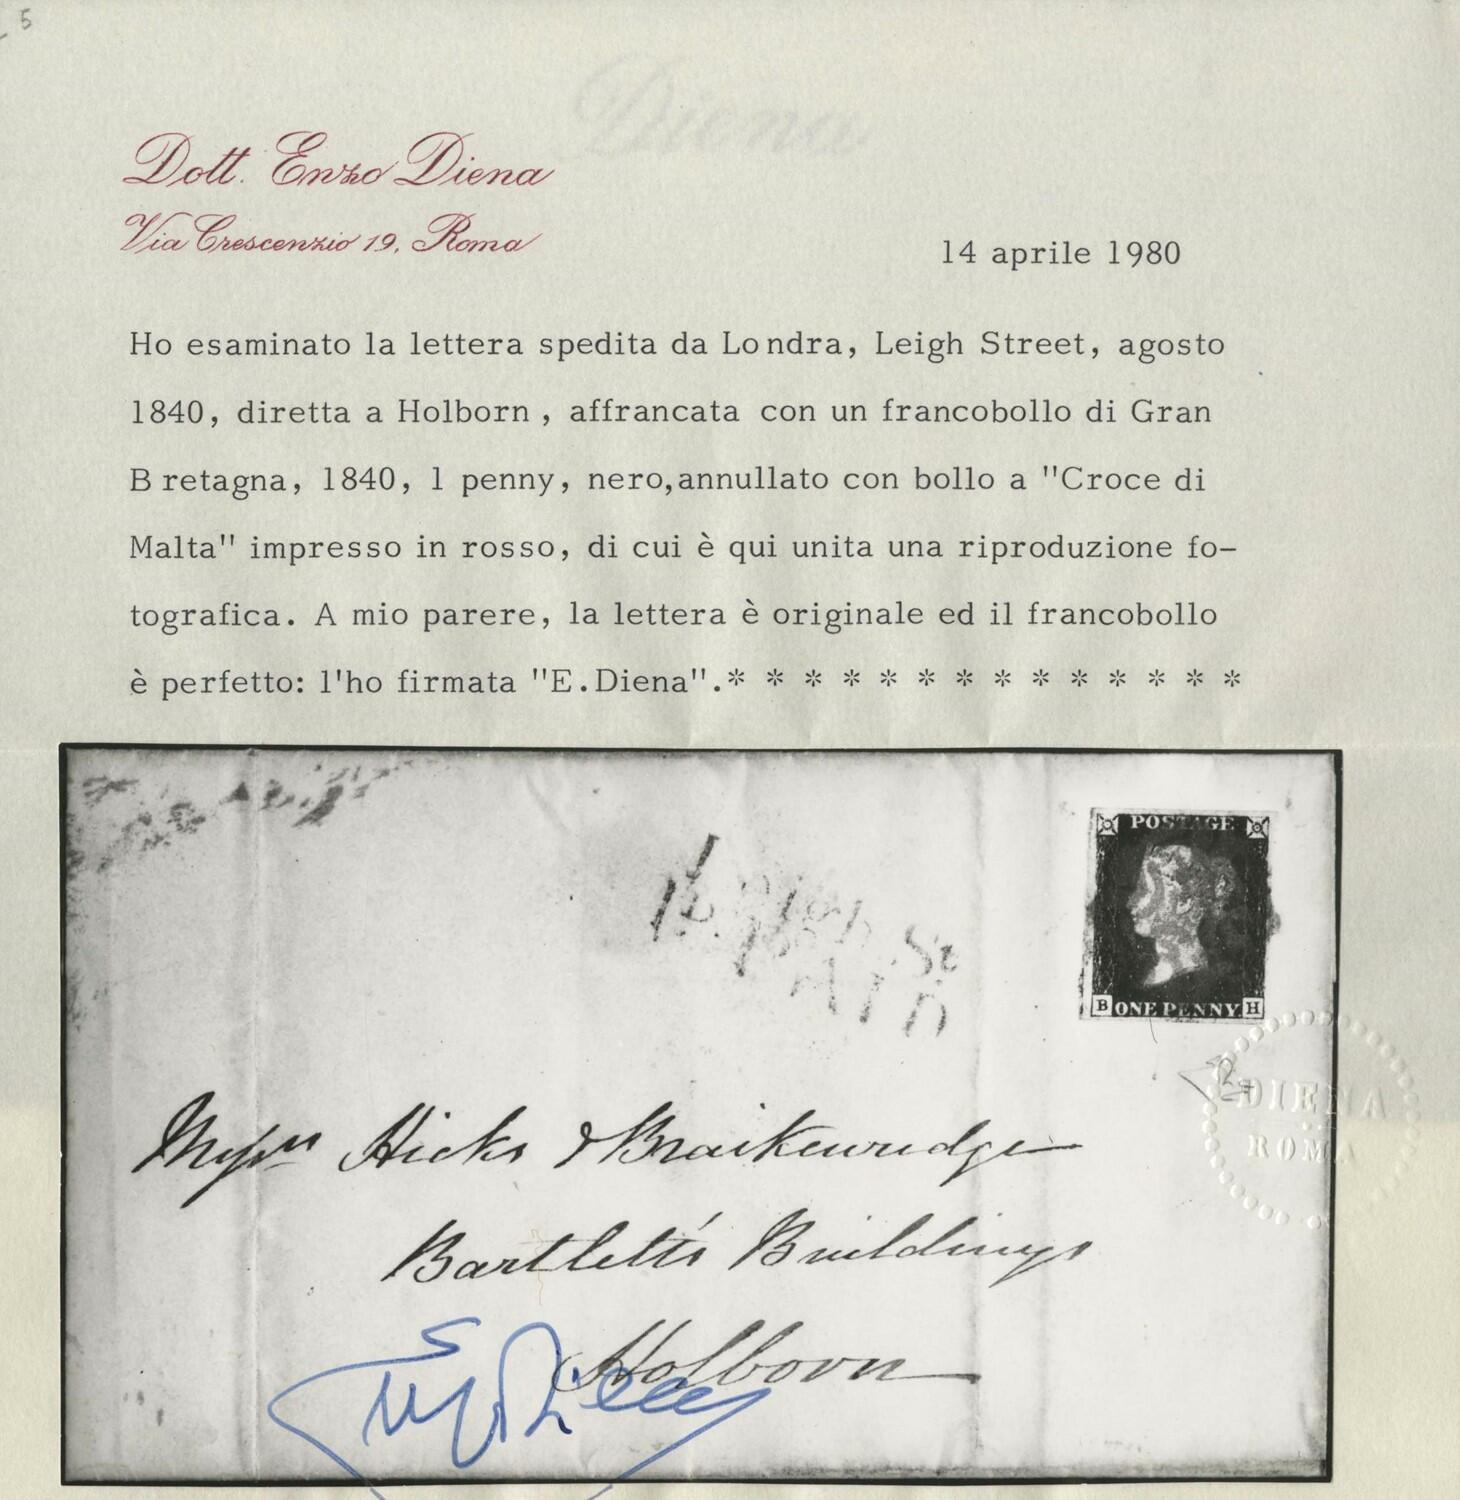 5
Diena
Dott. Enzo Diena
Via Crescenzio 19, Roma
14 aprile 1980
Ho esaminato la lettera spedita da Londra, Leigh Street, agosto
1840, diretta a Holborn, affrancata con un francobollo di Gran
Bretagna, 1840, 1 penny, nero,annullato con bollo a "Croce di
Malta" impresso in rosso, di cui è qui unita una riproduzione fo-
tografica. A mio parere, la lettera è originale ed il francobollo
è perfetto: l'ho firmata "E.Diena".* * * * * * * * * * * * * *
POSTAGE
Leigh St
B ONE PENNY H
DIENA
ROMA
Messrs Hicks & Braikenridge
Bartlett's Buildings
Holborn
E. Diena